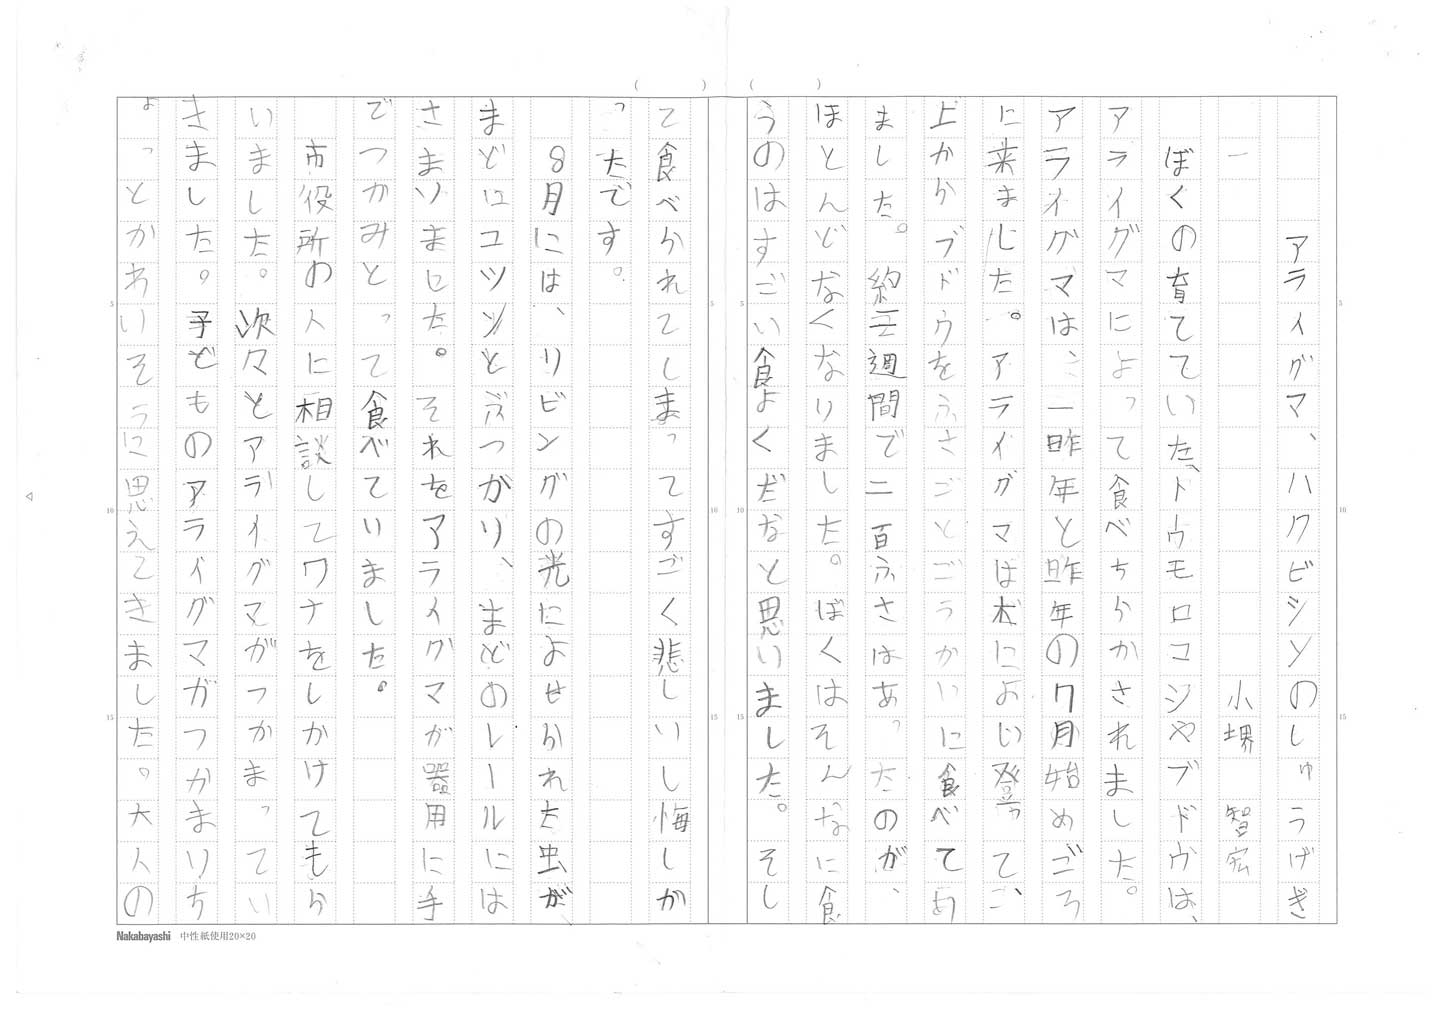 アライグマ、ハクビシンのしゅうげき
一　小堺　智宏
ぼくの育てていた、トウモロコシやブドウは、
アライグマによって食べちらかされました。
アライグマは、一昨年と昨年の7月始めごろ
に来ました。アライグマは木によじ登って、
上からブドウをふさごとごうかいに食べてあ
ました。約三週間で二百ふさはあったのが、
ほとんどなくなりました。ぼくはそんなに食
うのはすごい食よくだなと思いました。そし
て食べられてしまってすごく悲しいし悔しか
ったです。
8月には、リビングの光によせられた虫が
まどにコツンとぶつかり、まどのレールには
さまりました。それをアライグマが器用に手
でつかみとって食べていました。
市役所の人に相談してワナをしかけてもら
いました。次々とアライグマがつかまってい
きました。子どものアライグマがつかまりち
ょっとかわいそうに思えてきました。大人の
5
10
15
5
10
15
5
10
15
5
10
15
Nakabayashi　中性紙使用20×20